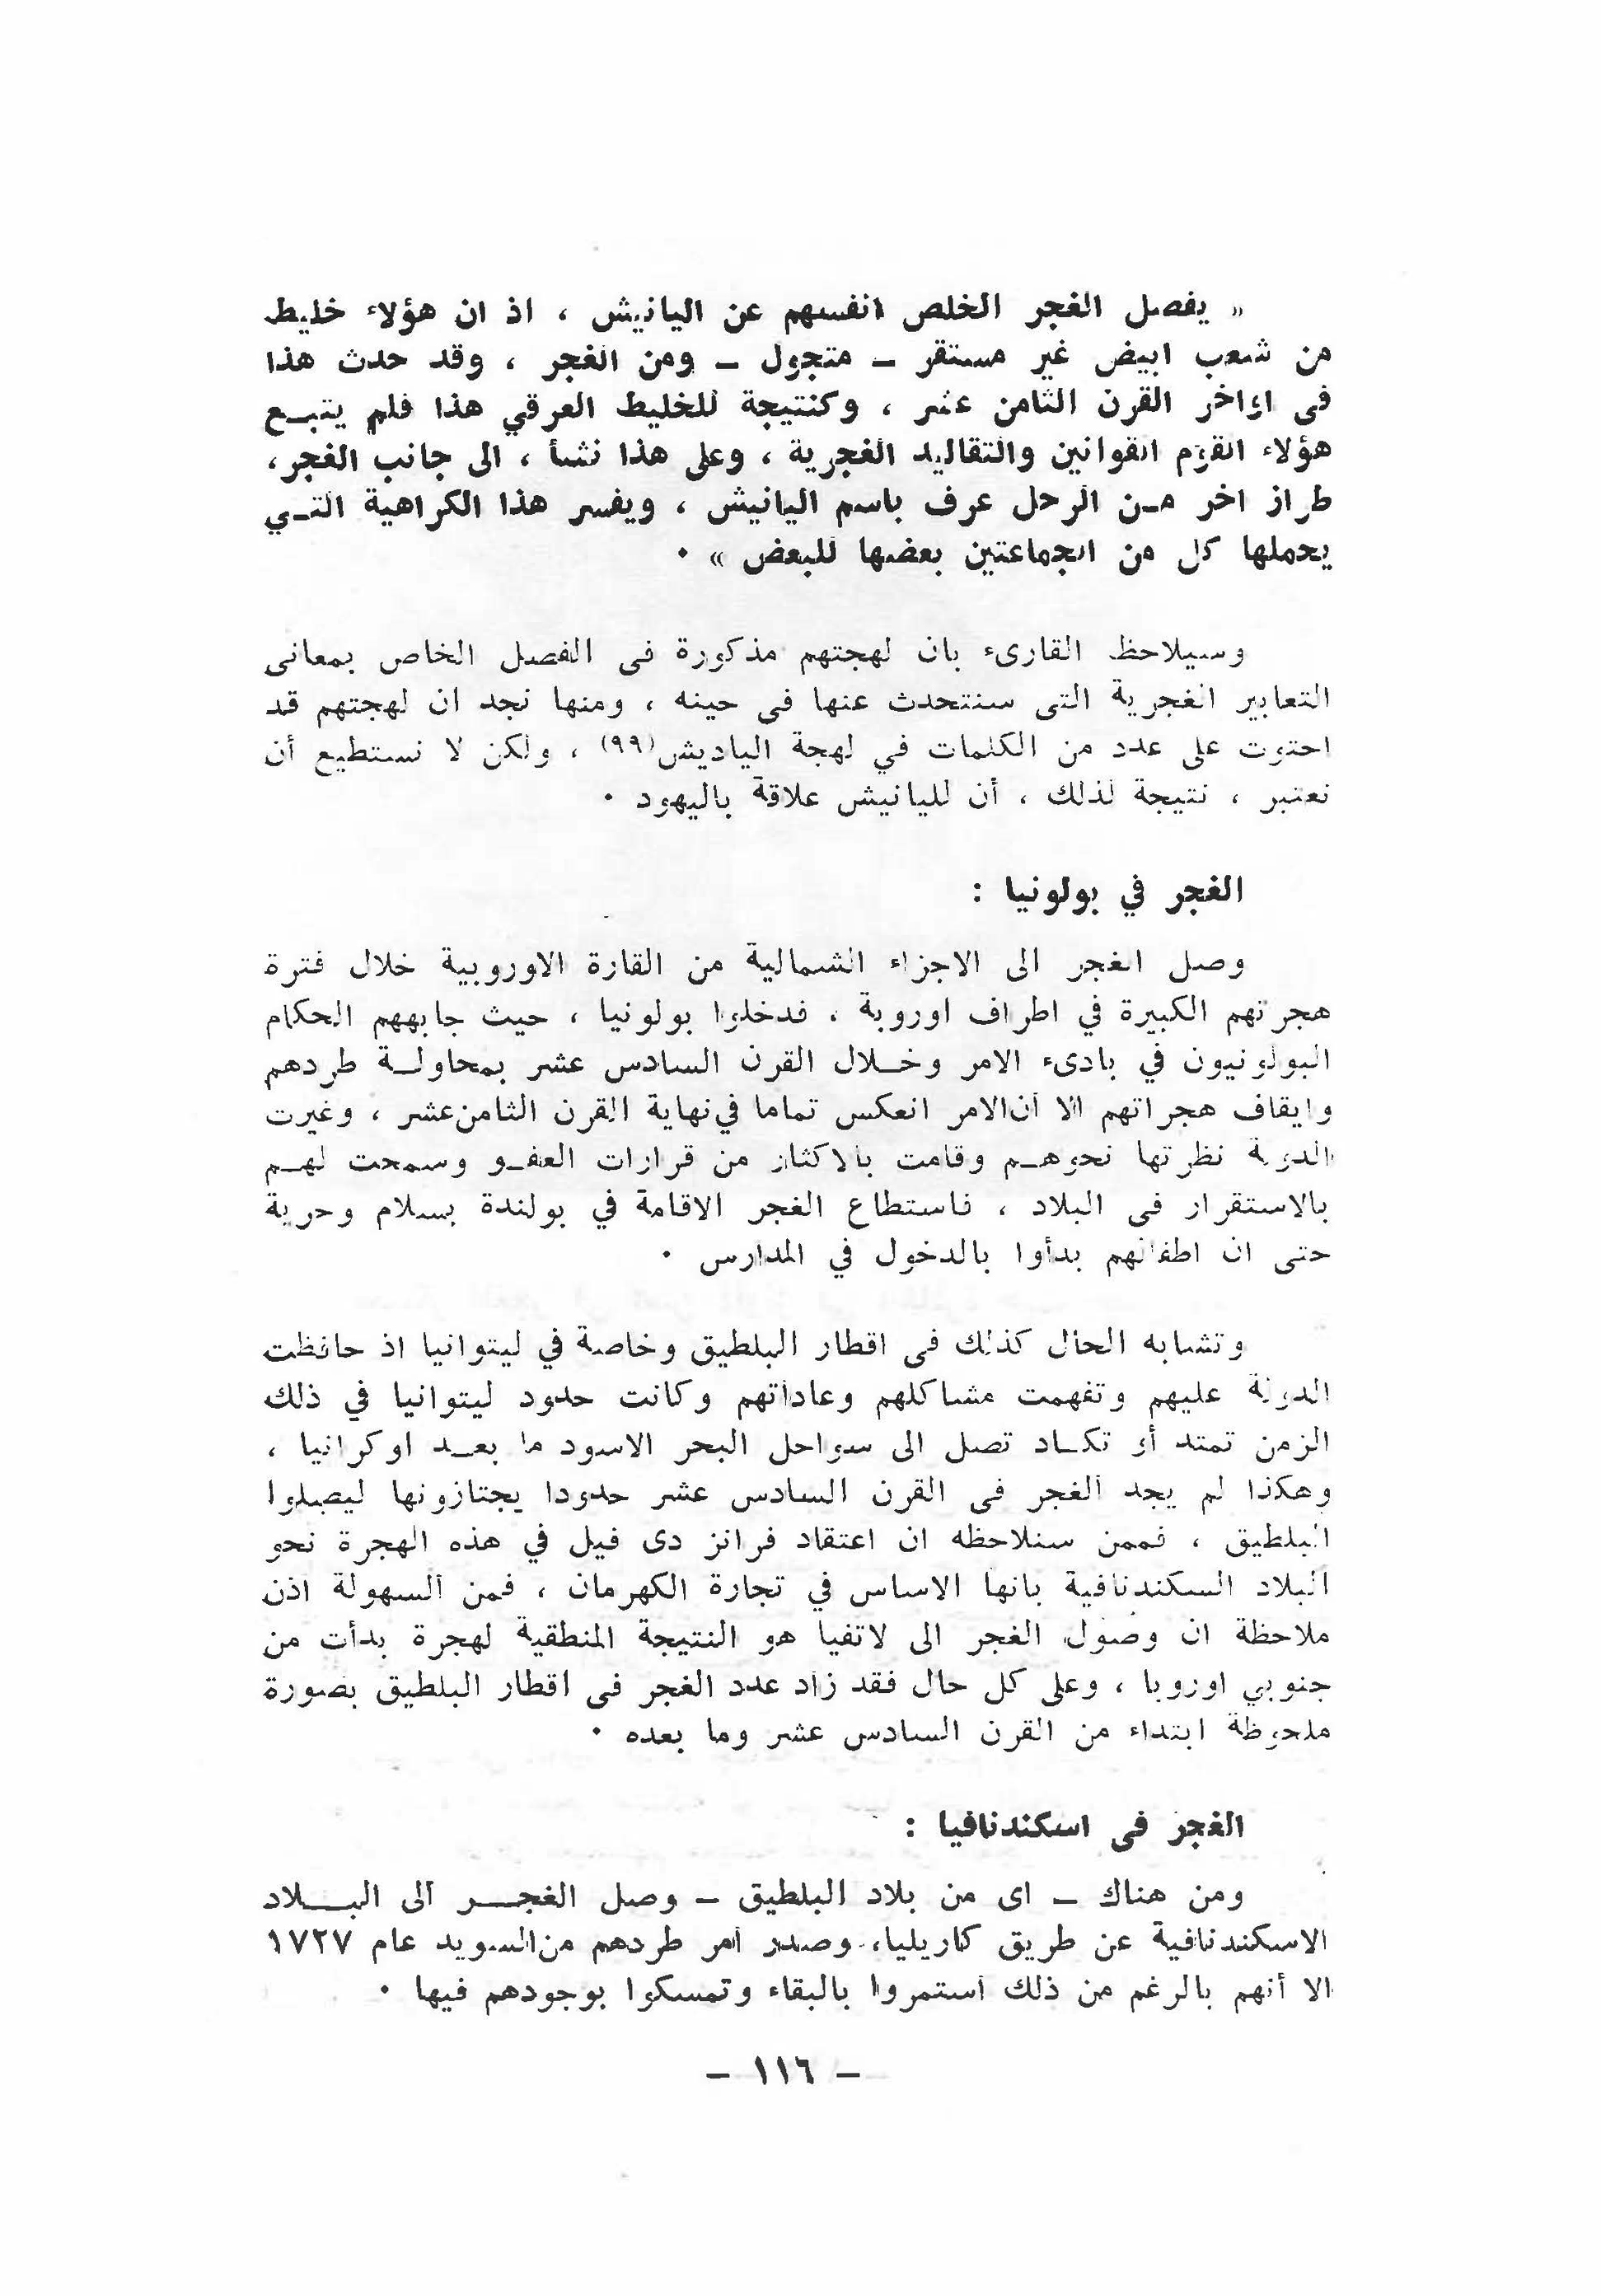 « يفصل الغجر الخلص انفسهم عن اليانيش ، اذ ان هؤلاء خليط
من شعب ابيض غير مستقر – متجول – ومن الغجر ، وقد حدث هذا
فى اواخر القرن الثامن عشر ، وكنتيجة للخليط العرقي هذا فلم يتبـع
هؤلاء القوم القوانين والتقاليد الغجرية ، وعلى هذا نشأ ، الى جانب الغجر،
طراز اخر مـن الرحل عرف باسم اليانيش ، ويفسر هذا الكراهية التـي
يحملها كل من الجماعتين بعضها للبعض » .
وسيلاحظ القارىء بان لهجتهم مذكورة فى الفصل الخاص بمعانى
التعابير الغجرية التى سنتحدث عنها فى حينه ، ومنها نجد ان لهجتهم قد
احتوت على عدد من الكلمات في لهجة الياديش(٩٩) ، ولكن لا نستطيع أن
نعتبر ، نتيجة لذلك ، أن لليانيش علاقة باليهود .
الغجر في بولونيا :
وصل الغجر الى الاجزاء الشمالية من القارة الاوروبية خلال فترة
هجرتهم الكبيرة في اطراف اوروبة ، فدخلوا بولونيا ، حيث جابههم الحكام
البولونيون في بادىء الامر وخـلال القرن السادس عشر بمحاولـة طردهم
وايقاف هجراتهم الا ان الامر انعكس تماما في نهاية القرن الثامن عشر ، وغيرت
الدولة نظرتها نحوهـم وقامت بالاكثار من قرارات العفـو وسمحت لهـم
بالاستقرار فى البلاد ، فاستطاع الغجر الاقامة في بولندة بسلام وحرية
حتى ان اطفالهم بدأوا بالدخول في المدارس .
وتشابه الحال كذلك فى اقطار البلطيق وخاصة في ليتوانيا اذ حافظت
الدولة عليهم وتفهمت مشاكلهم وعاداتهم وكانت حدود ليتوانيا في ذلك
الزمن تمتد أو تكـاد تصل الى سواحل البحر الاسود ما بعـد اوكرانيا ،
وهكذا لم يجد الغجر فى القرن السادس عشر حدودا يجتازونها ليصلوا
البلطيق ، فممن سنلاحظه ان اعتقاد فرانز دى فيل في هذه الهجرة نحو
البلاد السكندنافية بانها الاساس في تجارة الكهرمان ، فمن السهولة اذن
ملاحظة ان وصول الغجر الى لاتفيا هو النتيجة المنطقية لهجرة بدأت من
جنوبي اوروبا ، وعلى كل حال فقد زاد عدد الغجر فى اقطار البلطيق بصورة
ملحوظة ابتداء من القرن السادس عشر وما بعده .
الغجر فى اسكندنافيا :
ومن هناك – اى من بلاد البلطيق – وصل الغجـر الى البـلاد
الاسكندنافية عن طريق كاريليا، وصدر امر طردهم من السويد عام ١٧٢٧
الا أنهم بالرغم من ذلك استمروا بالبقاء وتمسكوا بوجودهم فيها .
– ١١٦ –